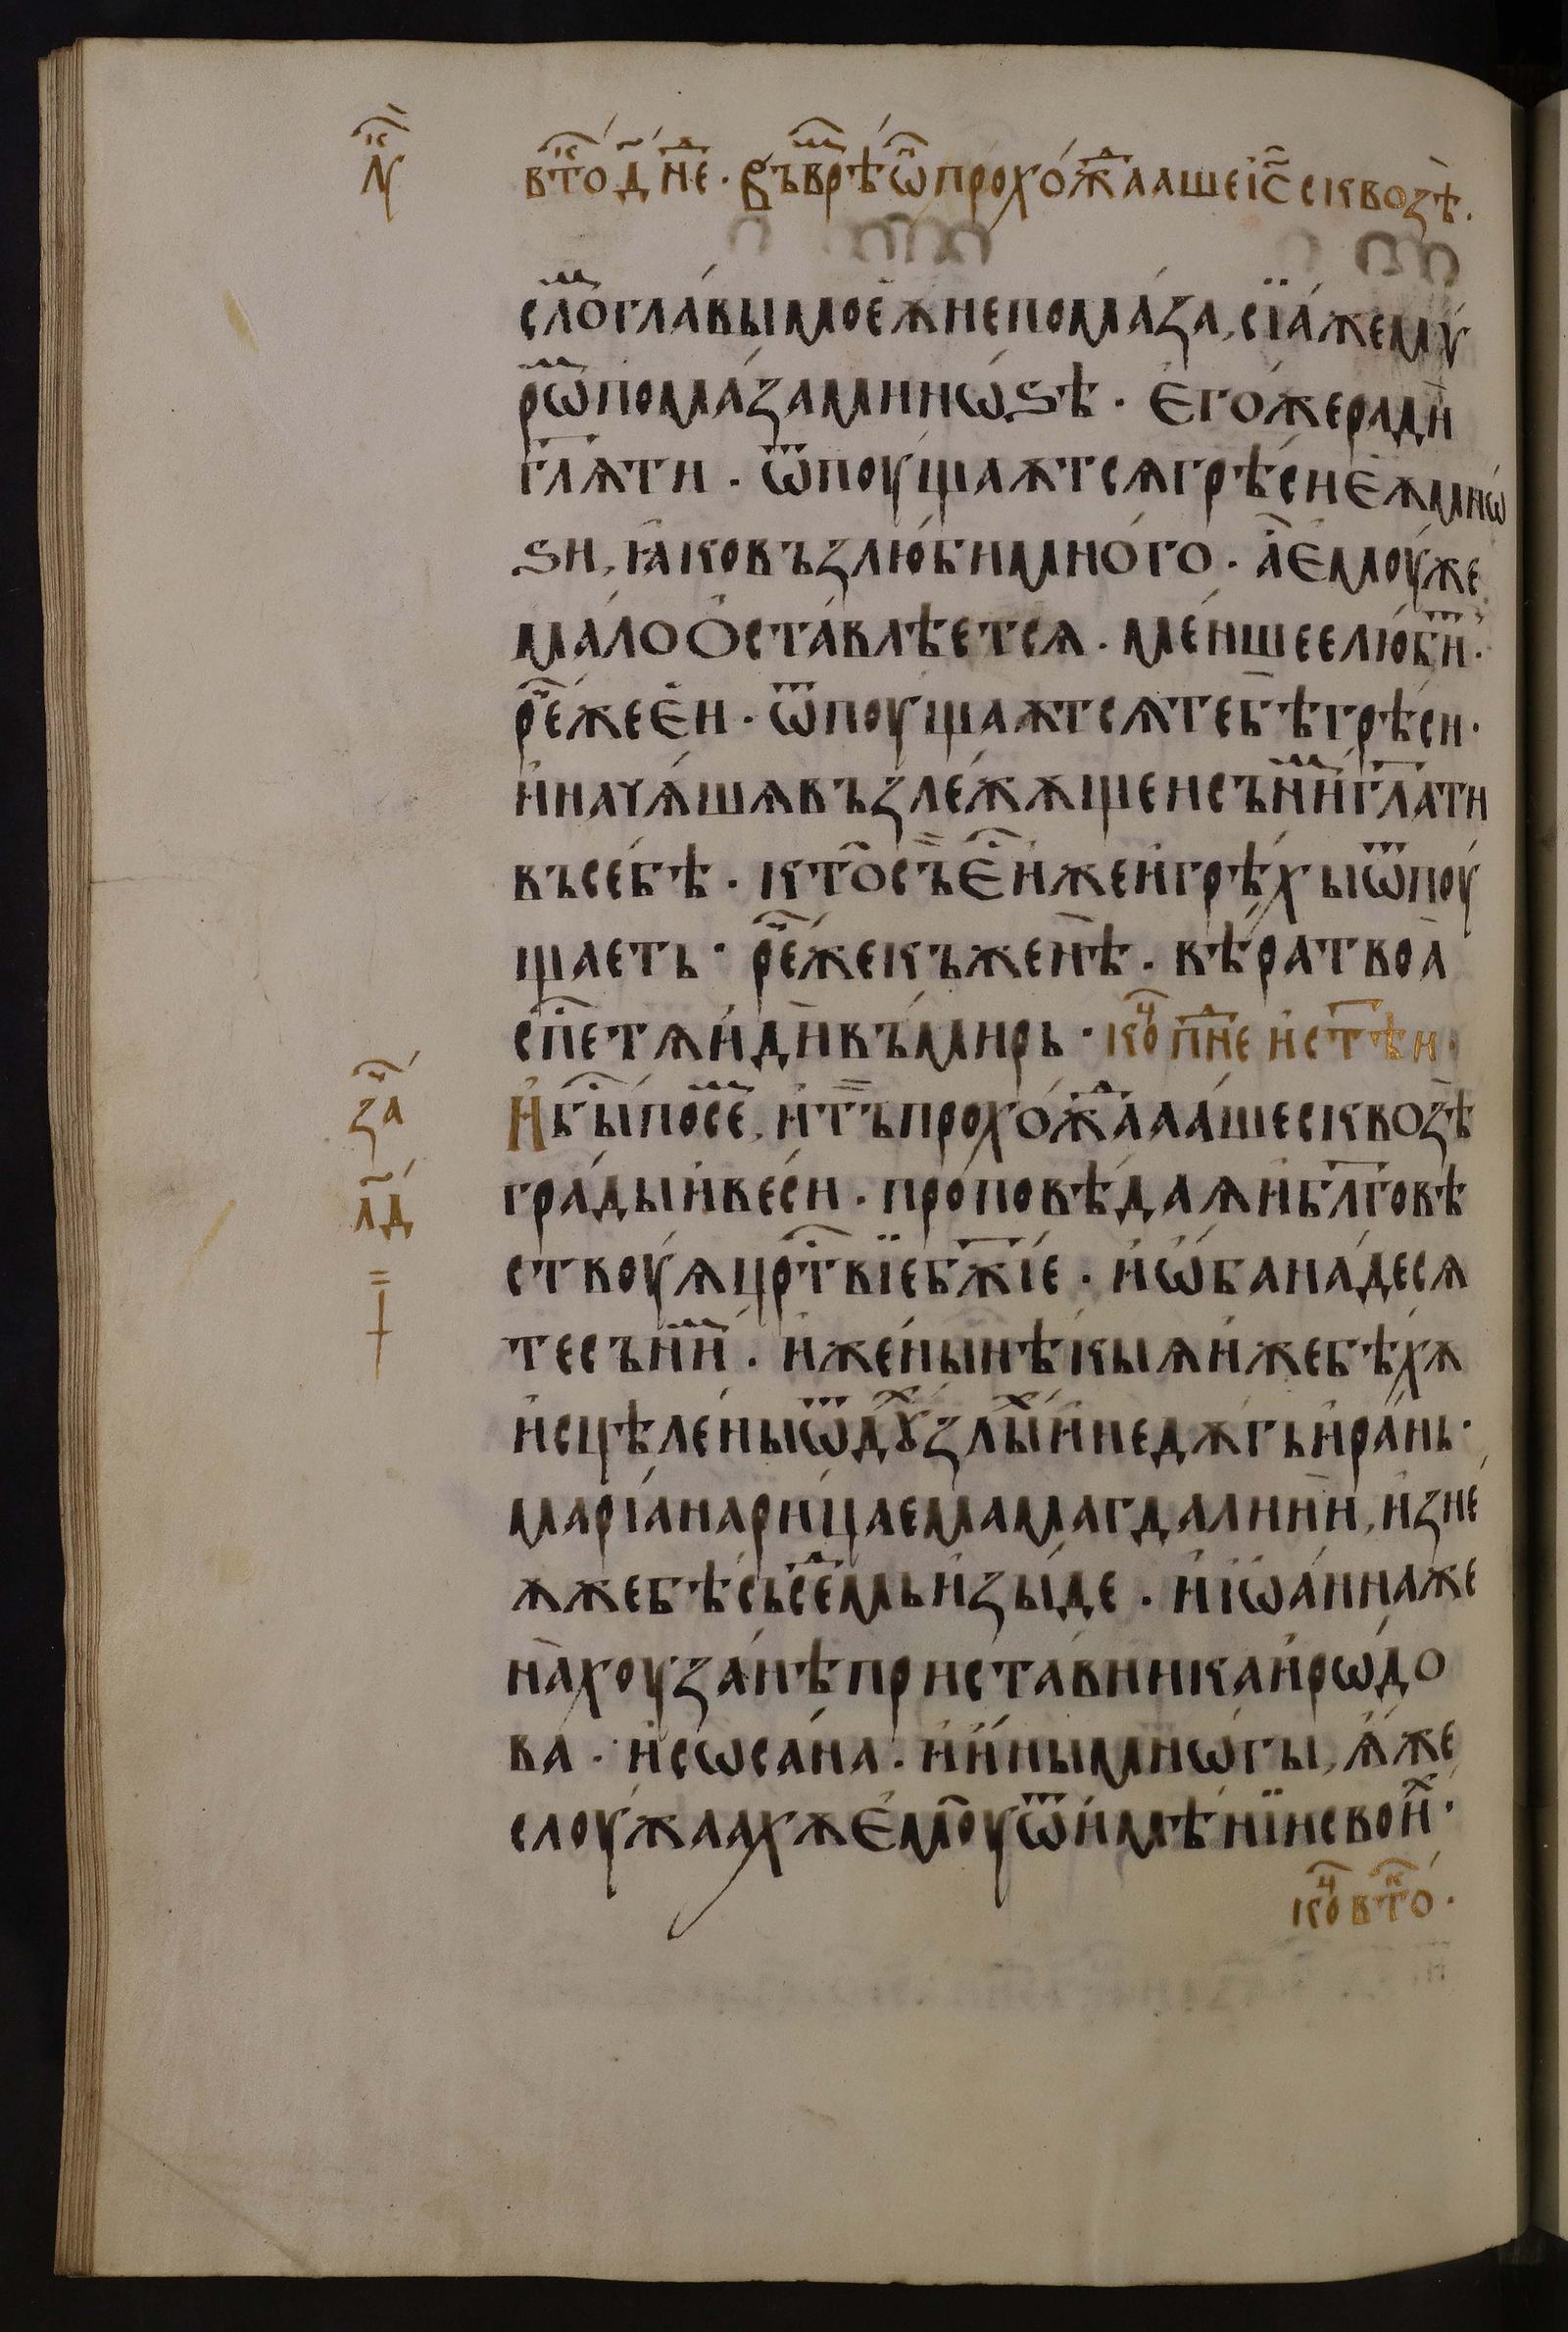 н҃к
вт҃о д҃ не҃ · въ вр҃ѣ ѡ҃ прохо́ж҃дааше і҃с сквозѣ̀ ·
сл҃о гла́вы моеѫ̀ не пома́за, сїа́ же му́
рѡ҃ пома́за ми нѡ́ѕѣ · Єго́же ради̇̀
гл҃ѫти · ѿпоу́щаѫтсѧ грѣ́си єѫ̀ мнѡ́
ѕи, ꙗ́ко възлю́би мно́го · а҆ ємоу́же
ма́ло ѻ҆ста́влѣетсѧ · ме́ншее лю́би ·
ре҃ же єи · ѿпоу́щаѫтсѧ тебѣ̀ грѣ́си ·
и҆ начѧ́шѧ възлежѧ́щеи съ ни́ми гл҃ати
въ себѣ̀ · кто̀ съ є҆́ иже и҆ грѣ́хы ѿпоу́
щаеть · ре҃ же къ женѣ̀ · вѣ́ра твоа̀
сп҃е тѧ и҆дѝ въ миръ · ко҃ пн҃е и҆ст҃ѣи ·
за҃
И҆ бы҃ по се҃, и҆ тъ̀ прохо́ж҃даааше сквозѣ̀
лд҃
гра́ды и҆ ве́си · проповѣ́даѧ и҆ бл҃говѣ
ствоу́ѧ цр҃твїе бж҃їе · и҆ ѡ҆бана́десѧ
те съ ни́м · и҆ жены̀ нѣ́кыѧ и҆же бѣ́хѫ
и҆сцѣле́ны ѿ дꙋ҃ злы́и҆ недѫ́гъ и҆ ра́нь ·
марі́а нарица́емаа магдали́ни, и҆з не́
ѫже бѣ́съ се҃мь и҆зы́де · и҆ і҆ѡа́нна же
на̀ хоуза́нѣ приста́вника и҆рѡ́до
ва · и҆ сѡса́на · и҆ и҆́ны мнѡ́гы, ѧ҆́же
слоужаахѫ є҆моу ѿ и҆мѣ́нїи свои́ ·
ко҃ вт҃о ·